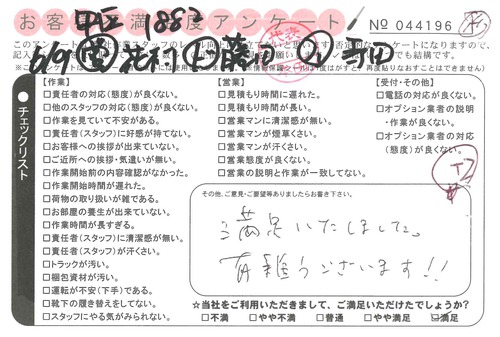 お客様満足度アンケート
中区 1883
No 044196
6/9
【作業】
□責任者の対応(態度)が良くない。
□他のスタッフの対応(態度)が良くない。
□作業を見ていて不安がある。
□責任者(スタッフ)に好感が持てない。
□お客様への挨拶が出来ていない。
□ご近所への挨拶・気遣いが無い。
□作業開始前の内容確認がなかった。
□作業開始時間が遅れた。
□荷物の取り扱いが雑である。
□お部屋の養生が出来ていない。
□作業時間が長すぎる。
□責任者(スタッフ)に清潔感が無い。
□責任者(スタッフ)が汗くさい。
□トラックが汚い。
□梱包資材が汚い。
□運転が不安(下手)である。
□靴下の履き替えをしてない。
□スタッフにやる気がみられない。
【営業】
□見積もり時間に遅れた。
□見積もり時間が長い。
□営業マンに清潔感が無い。
□営業マンが煙草くさい。
□営業マンが汗くさい。
□営業態度が良くない。
□営業の説明と作業が一致してない。
【受付・その他】
□電話の対応が良くない。
□オプション業者の説明
・作業が良くない。
□オプション業者の対応
(態度)が良くない。
チェックリスト
その他、ご意見・ご要望等ありましたらお書き下さい。
満足いたしました。
有難うございます!!
☆当社をご利用いただきまして、ご満足いただけたでしょうか?
□不満 □やや不満 □普通 □やや満足 ☑満足